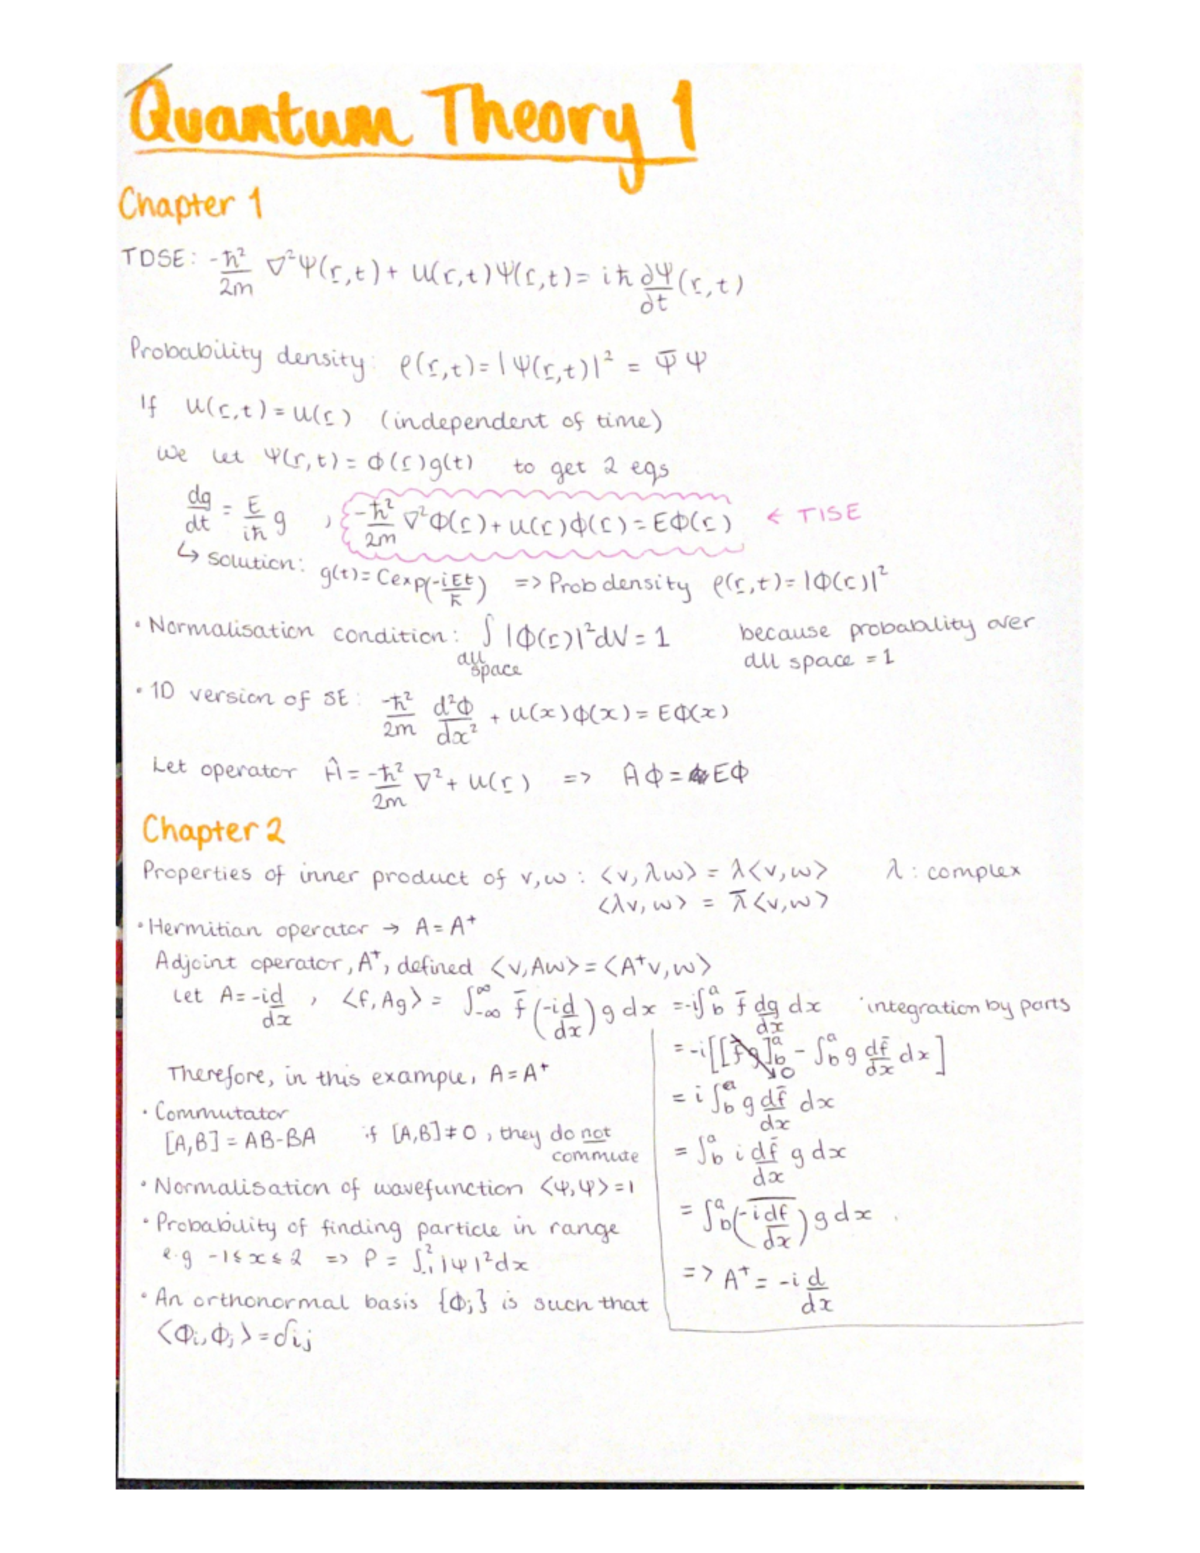 Quantum Theory 1
Chapter 1
TDSE: -ħ²/2m ∇²Ψ(r,t) + U(r,t)Ψ(r,t) = iħ ∂Ψ/∂t (r,t)
Probability density: ρ(r,t) = |Ψ(r,t)|² = Ψ̄Ψ
If U(r,t) = U(r) (independent of time)
We let Ψ(r,t) = Φ(r)g(t) to get 2 eqs
dg/dt = E/iħ g , -ħ²/2m ∇²Φ(r) + U(r)Φ(r) = EΦ(r) ← TISE
↳ Solution: g(t) = Cexp(-iEt/ħ) => Prob density ρ(r,t) = |Φ(r)|²
• Normalisation condition: ∫ all space |Φ(r)|²dV = 1 because probability over
all space = 1
• 1D version of SE: -ħ²/2m d²Φ/dx² + U(x)Φ(x) = EΦ(x)
Let operator Ĥ = -ħ²/2m ∇² + U(r) => AΦ = EΦ
Chapter 2
Properties of inner product of v,w : <v, λw> = λ<v,w> λ : complex
<λv, w> = λ̄<v,w>
• Hermitian operator → A = A⁺
Adjoint operator, A⁺, defined <v,Aw> = <A⁺v,w>
Let A = -id/dx , <f, Ag> = ∫_-∞^∞ f̄ (-id/dx) g dx = -i∫_b^a f̄ dg/dx dx integration by parts
= -i[[f̄g]_b^a → 0 - ∫_b^a g df̄/dx dx]
= i∫_b^a g df̄/dx dx
= ∫_b^a i df̄/dx g dx
= ∫_b^a (‾-idf/dx‾) g dx
=> A⁺ = -i d/dx
Therefore, in this example, A = A⁺
• Commutator
[A,B] = AB-BA if [A,B] ≠ 0 , they do not
commute
• Normalisation of wavefunction <Ψ,Ψ> = 1
• Probability of finding particle in range
e.g -1 ≤ x ≤ 2 => P = ∫_-1^2 |Ψ|²dx
• An orthonormal basis {Φj} is such that
<Φi,Φj> = δij